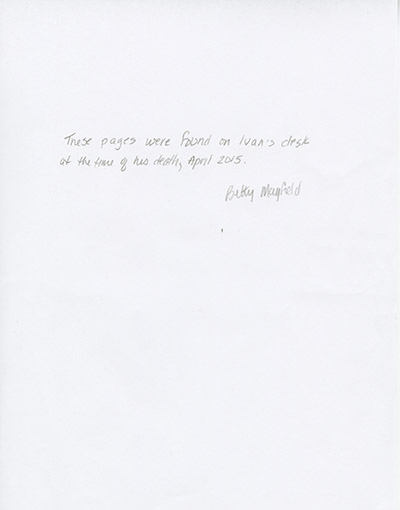 These pages were found on Ivan's desk
at the time of his death, April 2015.
Betty Mayfield